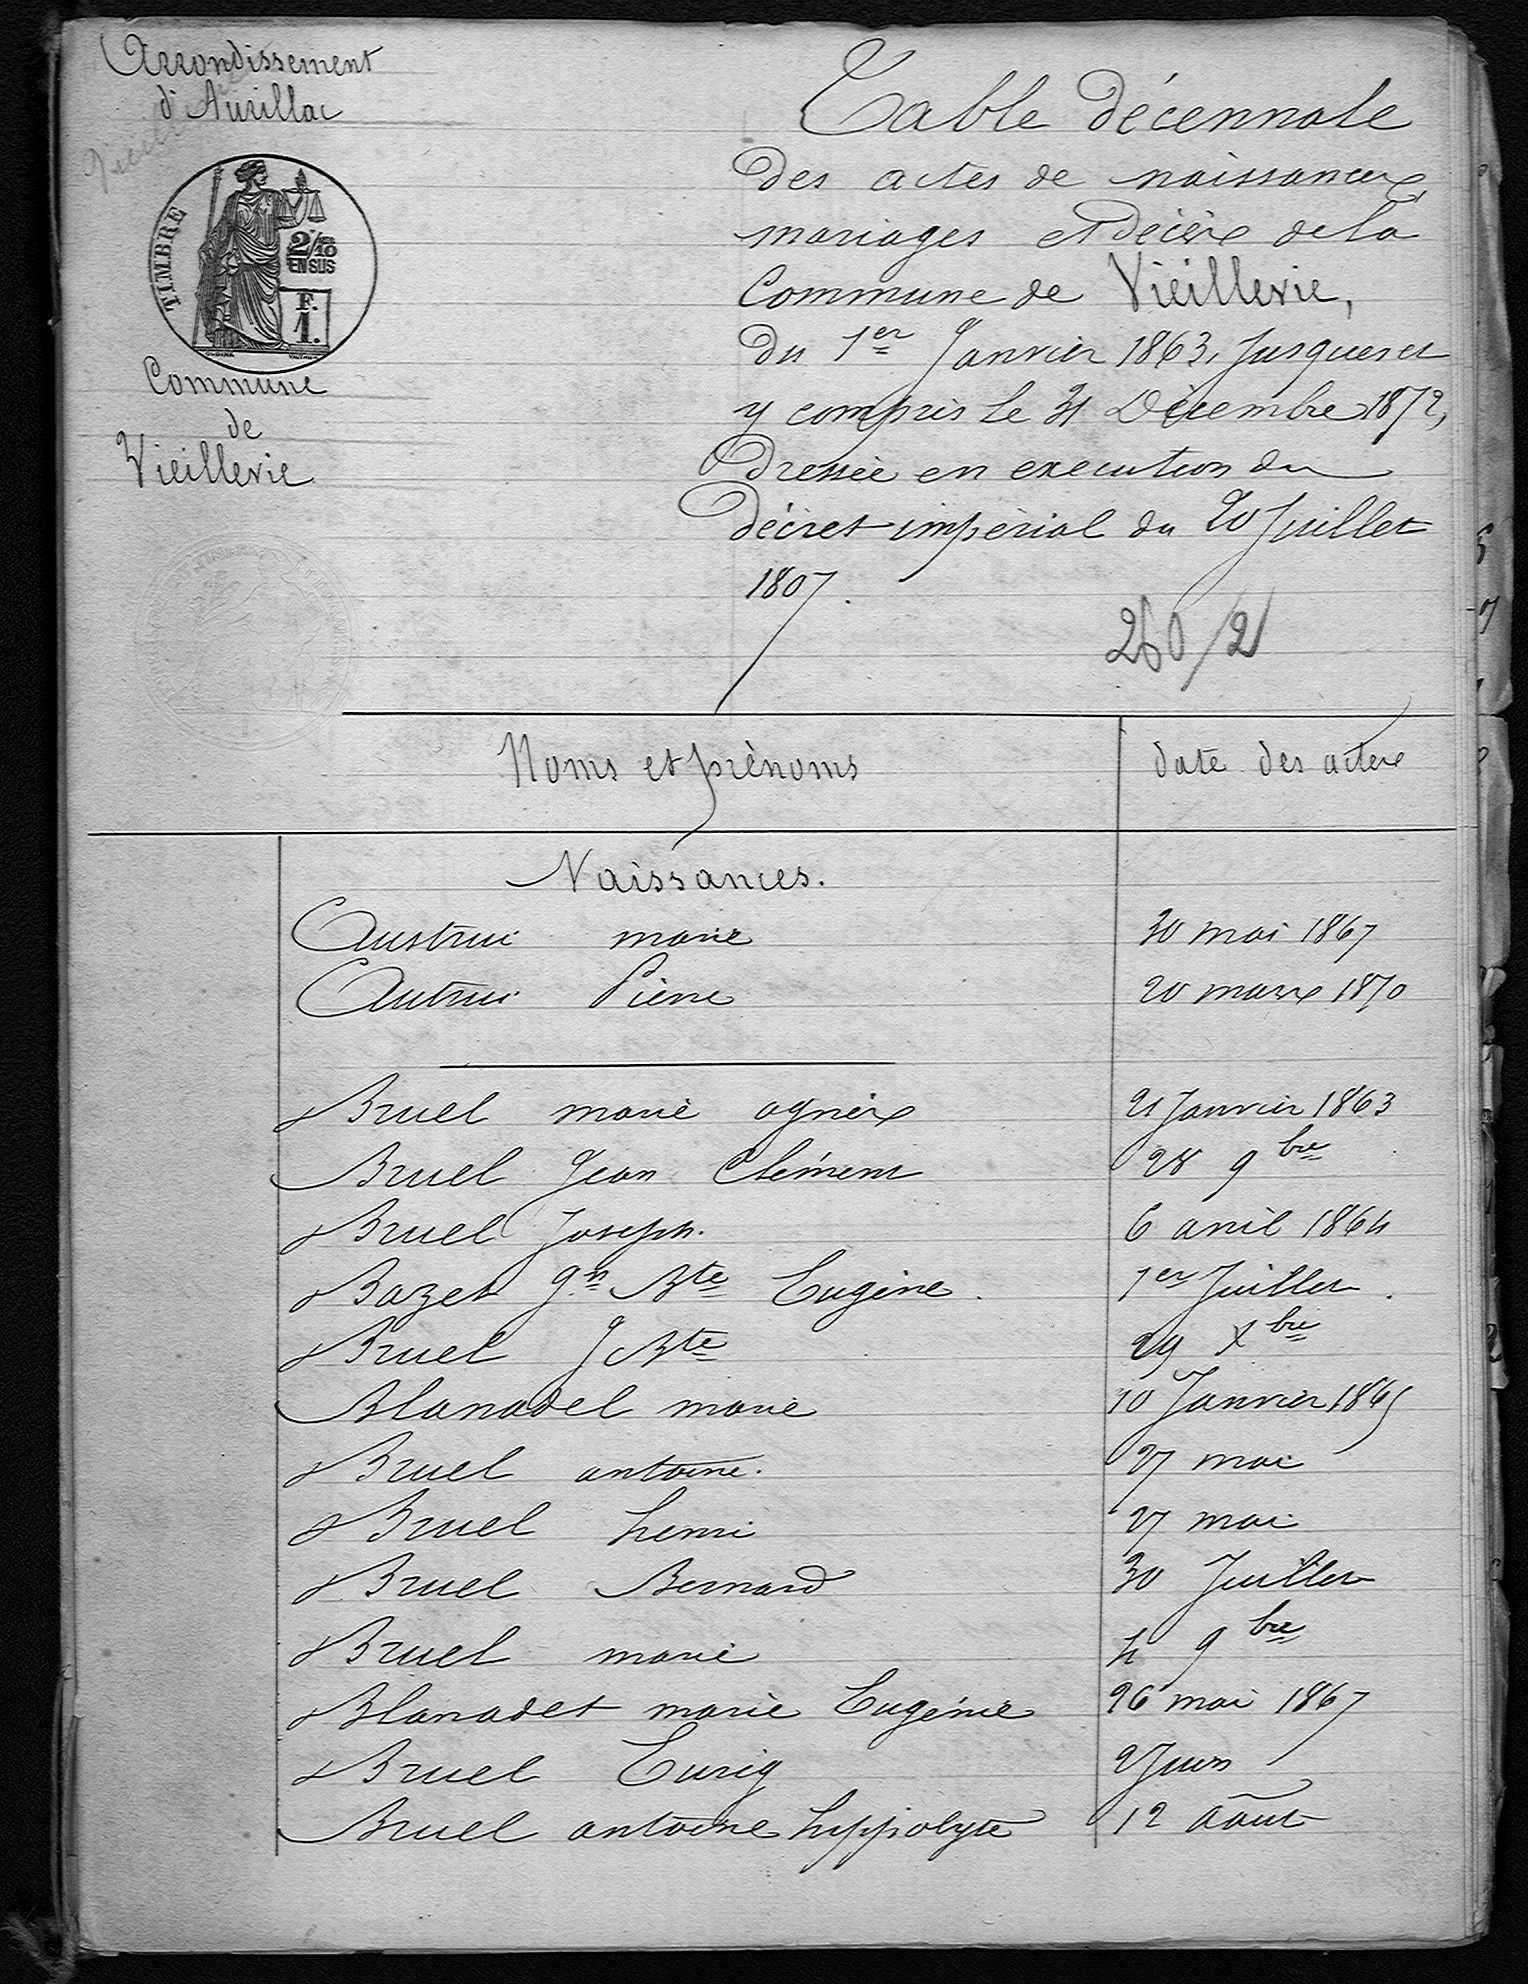 Arrondissement
d'Aurillac
TIMBRE
2/10
EN SUS
F.
1.
Commune
de
Vieillevie
Table décennale
des actes de naissances,
mariages et décès de la
Commune de Vieillevie,
du 1er Janvier 1863, Jusques et
y compris le 31 Décembre 1872,
Dressée en execution du
décret impérial du 20 Juillet
1807.
260/2
Noms et prénoms	date des actes
Naissances.
Austrui marie	30 mai 1867
Autrui Pierre	20 mars 1870
Bruel marie agnès	21 Janvier 1863
Bruel Jean Clément	28 9bre
Bruel Joseph.	6 avril 1864
Bazet Jn Bte Eugène.	1er Juillet.
Bruel J Bte	29 Xbre
Blanadel marie	10 Janvier 1865
Bruel antoine.	27 mai
Bruel henri	27 mai
Bruel Bernard	30 Juillet
Bruel marie	4 9bre
Blanadet marie Eugénie	26 mai 1867
Bruel Eurig	2 Juin
Bruel antoine hyppolyte	12 Août